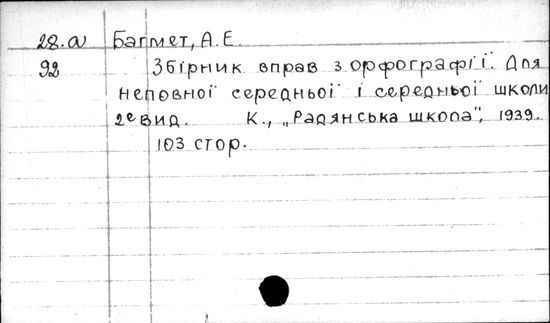 28.а Багмет, А.Е.
92 Збірник вправ з орфографії. Для
неповної середньої і середньої школи
2е вид. К., „Радянська школа", 1939.
103 стор.